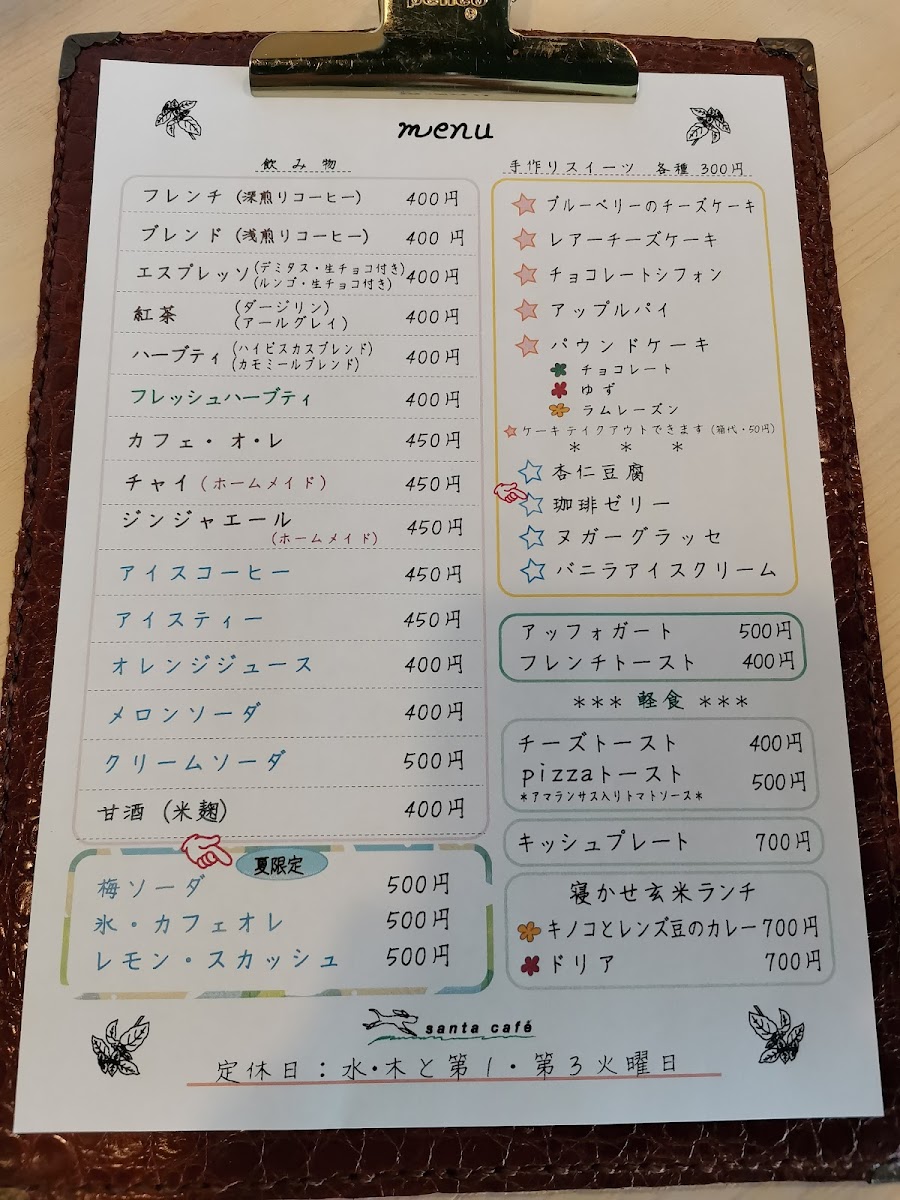 menu
飲み物
フレンチ (深煎りコーヒー) 400円
ブレンド (浅煎りコーヒー) 400円
エスプレッソ (デミタス・生チョコ付き) 400円
(ルンゴ・生チョコ付き)
紅茶 (ダージリン) 400円
(アールグレイ)
ハーブティ (ハイビスカスブレンド) 400円
(カモミールブレンド)
フレッシュハーブティ 400円
カフェ・オ・レ 450円
チャイ (ホームメイド) 450円
ジンジャエール 450円
(ホームメイド)
アイスコーヒー 450円
アイスティー 450円
オレンジジュース 400円
メロンソーダ 400円
クリームソーダ 500円
甘酒 (米麹) 400円
夏限定
梅ソーダ 500円
氷・カフェオレ 500円
レモン・スカッシュ 500円
手作りスイーツ 各種 300円
ブルーベリーのチーズケーキ
レアーチーズケーキ
チョコレートシフォン
アップルパイ
パウンドケーキ
チョコレート
ゆず
ラムレーズン
ケーキテイクアウトできます (箱代・50円)
* * *
杏仁豆腐
珈琲ゼリー
ヌガーグラッセ
バニラアイスクリーム
アッフォガート 500円
フレンチトースト 400円
*** 軽食 ***
チーズトースト 400円
pizzaトースト 500円
*アマランサス入りトマトソース*
キッシュプレート 700円
寝かせ玄米ランチ
キノコとレンズ豆のカレー 700円
ドリア 700円
santa café
定休日：水・木と第1・第3火曜日